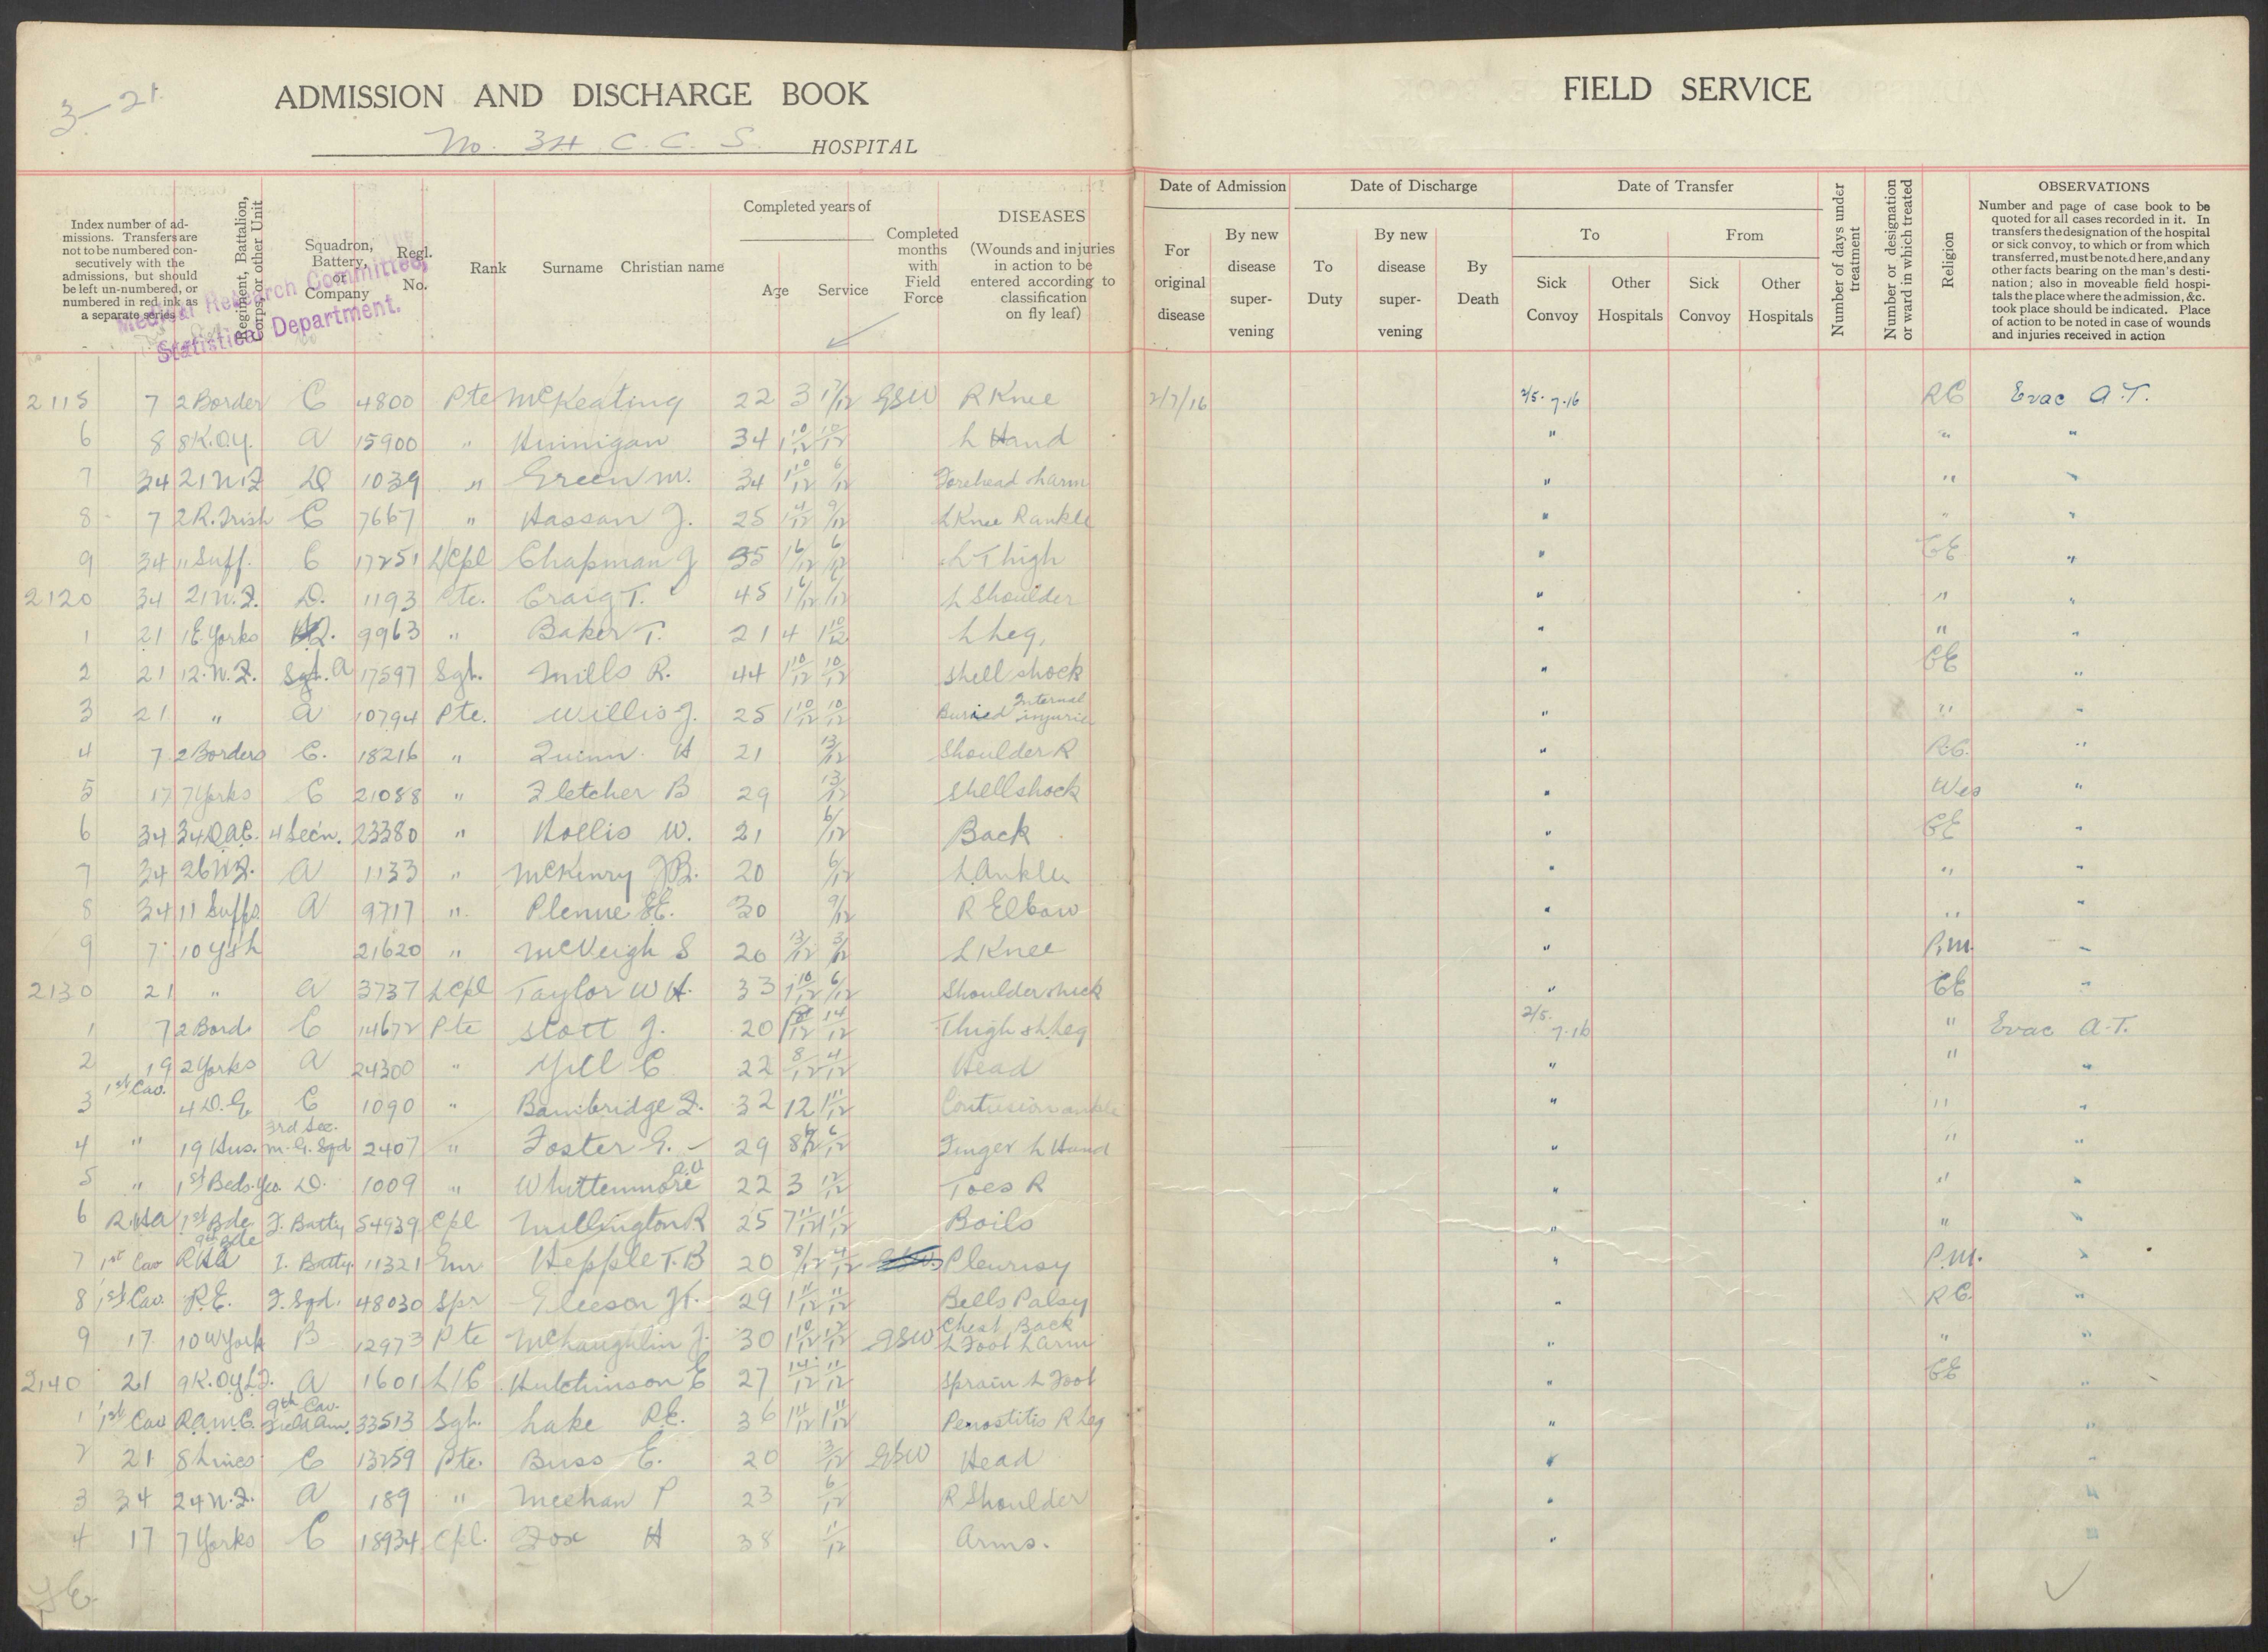 3-21.
ADMISSION AND DISCHARGE BOOK
No. 34 C. C. S. HOSPITAL
FIELD SERVICE
Index number of admissions. Transfers are not to be numbered consecutively with the admissions, but should be left un-numbered, or numbered in red ink as a separate series
Regiment, Battalion, Corps, or other Unit
Squadron, Battery, or Company
Regl. No.
Rank
Surname Christian name
Completed years of
Age Service
Completed months with Field Force
DISEASES
(Wounds and injuries in action to be entered according to classification on fly leaf)
Medical Research Committee,
Statistical Department.
Date of Admission
For original disease
By new disease supervening
Date of Discharge
To Duty
By new disease supervening
By Death
Date of Transfer
To
Sick Convoy
Other Hospitals
From
Sick Convoy
Other Hospitals
Number of days under treatment
Number or designation or ward in which treated
Religion
OBSERVATIONS
Number and page of case book to be quoted for all cases recorded in it. In transfers the designation of the hospital or sick convoy, to which or from which transferred, must be noted here, and any other facts bearing on the man's destination; also in moveable field hospitals the place where the admission, &c. took place should be indicated. Place of action to be noted in case of wounds and injuries received in action
2115 7 2 Border C 4800 Pte McKeating 22 3 GSW R Knee 2/7/16 2/5.7.16 RC Evac A.T.
6 8 8 K.O.Y. A 15900 " 34 1 10/12 10/12 L Hand " " "
7 34 21 N.F D 1039 " Green M. 34 1 10/12 6/12 Forehead L arm " " "
8 7 2 R. Irish C 7667 " Hassan J. 25 1 4/12 9/12 L Knee R ankle " " "
9 34 11 Suff. C 17251 L/Cpl Chapman J 35 1 6/12 6/12 L Thigh " CE "
2120 34 21 N.F. D. 1193 Pte. Craig T. 45 1 6/12 6/12 L Shoulder " " "
1 21 1 E. Yorks 9963 " Baker T. 21 4 1 10/12 L Leg, " " "
2 21 12. N.F. Sgt. A 17597 Sgt. Mills R. 44 1 10/12 10/12 Shell shock " CE "
3 21 " A 10794 Pte. Willis J. 25 1 10/12 10/12 Buried Internal injuries " " "
4 7 2 Borders C. 18216 " Quinn H 21 13/12 Shoulder R " R.C. "
5 17 7 Yorks C 21088 " Fletcher B 29 13/12 Shell shock " Wes "
6 34 34 D.A.C. 4 Sec'n. 23380 " Hollis W. 21 6/12 Back " CE "
7 34 26 N.F. A 1133 " McKinry J.B. 20 6/12 L. Ankle " " "
8 34 11 Suffs. A 9717 " 30 9/12 R Elbow " " "
9 7 10 21620 " McVeigh S 20 13/12 3/12 L Knee " P.M. "
2130 21 " A 3737 L Cpl Taylor W H. 33 1 10/12 6/12 Shoulder " CE "
1 7 2 Bord. C 14672 Pte Scott J. 20 14/12 Thigh & L. Leg 2/5. 7.16 " Evac A.T.
2 19 2 Yorks A 24300 " Yill C 22 8/12 4/12 Head " " "
3 1st Cav. 4 D.G. C 1090 " Bambridge F. 32 12 1 11/12 Contusion ankle " " "
4 " 19 Hus. 3rd Sec. M.G. Sqd 2407 " Foster G. 29 8 6/12 Finger L Hand " " "
5 " 1st Beds. Yeo. D. 1009 " Whittenmore 22 3 12/12 Toes R " " "
6 R.H.A 1st Bde I. Batty 54939 Cpl Millington R 25 7 11/12 1 11/12 Boils " " "
7 1st Cav 9th Bde RHA I. Batty. 11321 Gnr Hepple T.B 20 8/12 4/12 Pleurisy " P.M. "
8 1st Cav. R.E. F. Sqd. 48030 Spr Gleeson 29 1 11/12 11/12 Bells Palsy " RC. "
9 17 10 W York B 12973 Pte McLaughlin J. 30 1 10/12 12/12 GSW Chest Back L Foot L arm " " "
2140 21 9 K.O.Y.L.I. A 1601 L/C Hutchinson E 27 14/12 11/12 Sprain L Foot " CE "
1 1st Cav R.A.M.C. 9th Cav. Field Am. 33513 Sgt. Lake R.E. 36 1 11/12 1 11/12 Periostitis R Leg " "
2 21 8 Lincs C 13259 Pte. Buss E. 20 3/12 GSW Head " "
3 34 24 N.F. A 189 " Meehan P 23 6/12 R Shoulder " "
4 17 7 Yorks C 18934 Cpl. Fox H 38 11/12 Arms. " "